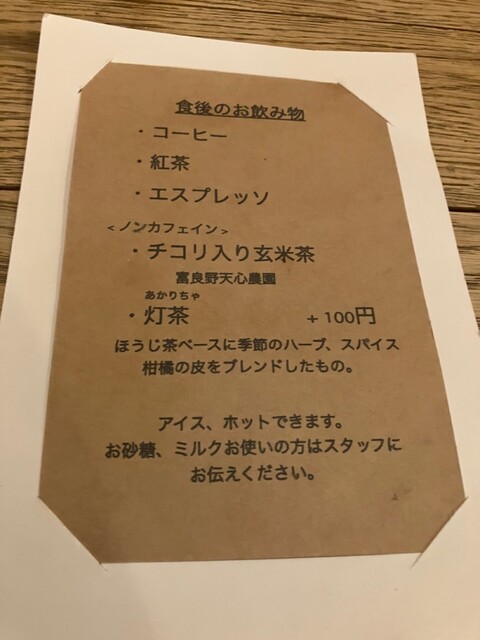 食後のお飲み物
・コーヒー
・紅茶
・エスプレッソ
<ノンカフェイン>
・チコリ入り玄米茶
富良野天心農園
あかりちゃ
・灯茶 +100円
ほうじ茶ベースに季節のハーブ、スパイス
柑橘の皮をブレンドしたもの。
アイス、ホットできます。
お砂糖、ミルクお使いの方はスタッフに
お伝えください。